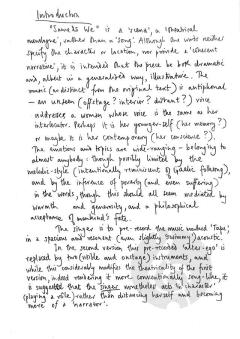 Introduction
"Same As We" is a 'scena', a 'theatrical
monologue', rather than a 'song'. Although the words neither
specify the character or location, nor provide a 'coherent
narrative', it is intended that the piece be both dramatic
and, albeit in a generalised way, illustrative. The
music (as distinct from the original text) is antiphonal
– an unseen (offstage? interior? distant?) voice
addresses a woman whose voice is the same as her
interlocutor. Perhaps it is her younger-self (her memory?)
or maybe it is her contemporary (her conscience?).
The emotions and topics are wide-ranging – belonging to
almost anybody: though possibly limited by the
melodic-style (intentionally reminiscent of Gaelic folksong),
and by the inference of anxiety (and even suffering)
in the words, though this should all seem mediated by
warmth and generosity, and a philosophical
acceptance of mankind's fate.
The singer is to pre-record the music marked 'Tape',
in a spacious and resonant (even slightly swimmy) acoustic.
In the second version this pre-recorded 'alter-ego' is
replaced by two (visible and onstage) instruments, and
while this considerably modifies the theatricality of the first
version, indeed rendering it more conventionally song-like, it
is suggested that the singer nonetheless acts 'in character'
(playing a rôle) rather than distancing herself and becoming
more of a 'narrator'.